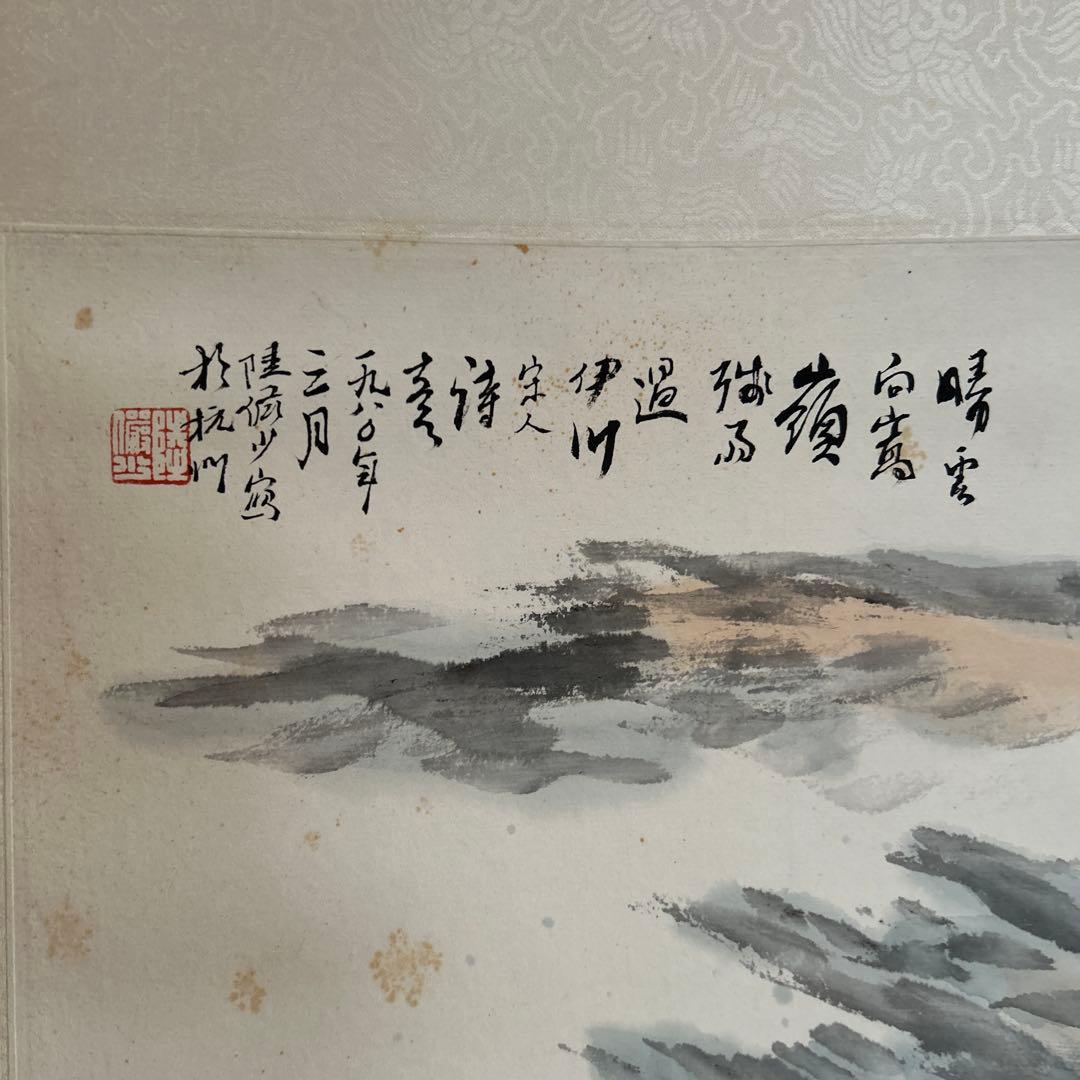 晴雲
向嵩
嶺
殘雨
過
伊川
宋人
詩
意
一九八〇年
三月
陸儼少寫
於杭州